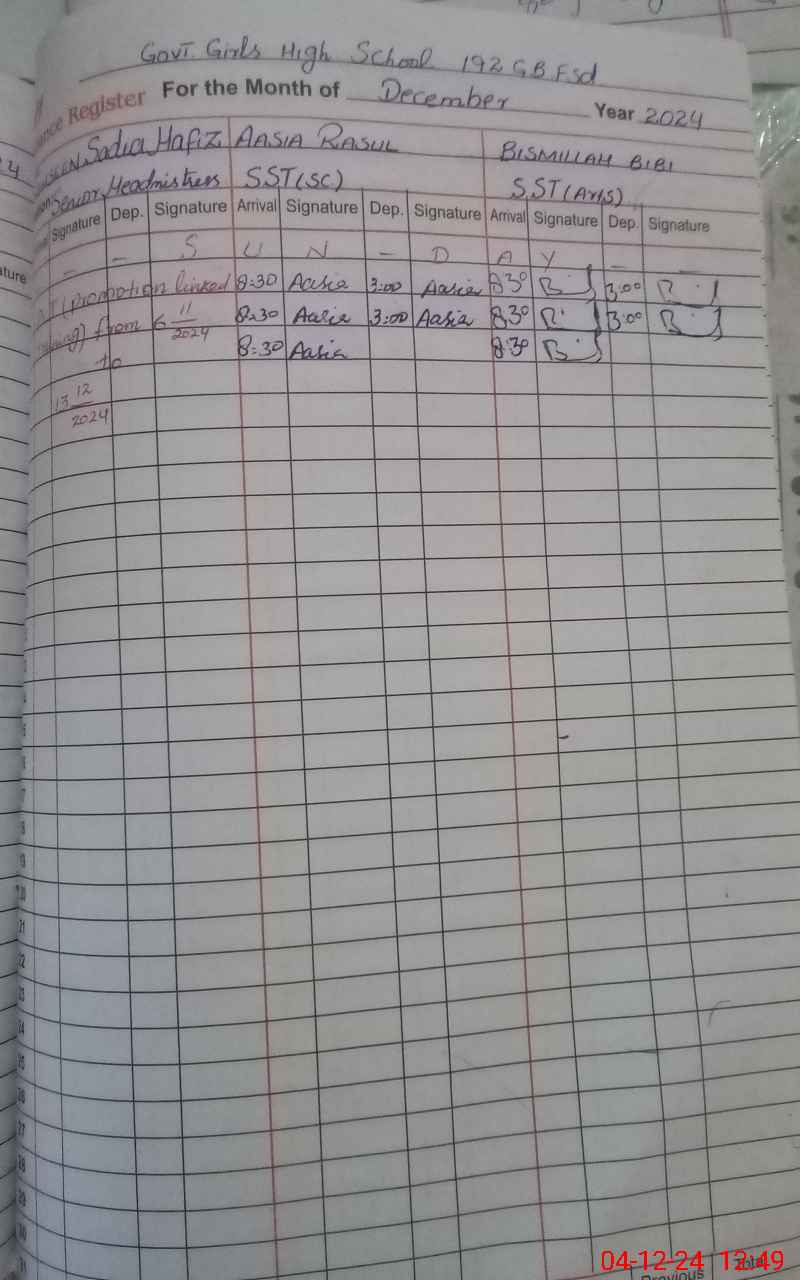 Govt. Girls High School 192 GB Fsd
nce Register For the Month of December Year 2024
Sadia Hafiz AASIA RASUL BISMILLAH BIBI
Senior Headmistress SST(SC) SST(Arts)
Signature Dep. Signature Arrival Signature Dep. Signature Arrival Signature Dep. Signature
— — S U N — D A Y — —
(Promotion linked 8:30 Aasia 3:00 Aasia 8:30 3:00
from 6 11 2024 8:30 Aasia 3:00 Aasia 8:30 3:00
to 8:30 Aasia 8:30
13 12
2024
18
19
20
21
22
23
24
25
26
27
28
29
30
31
04-12-24 12:49
Previous Total